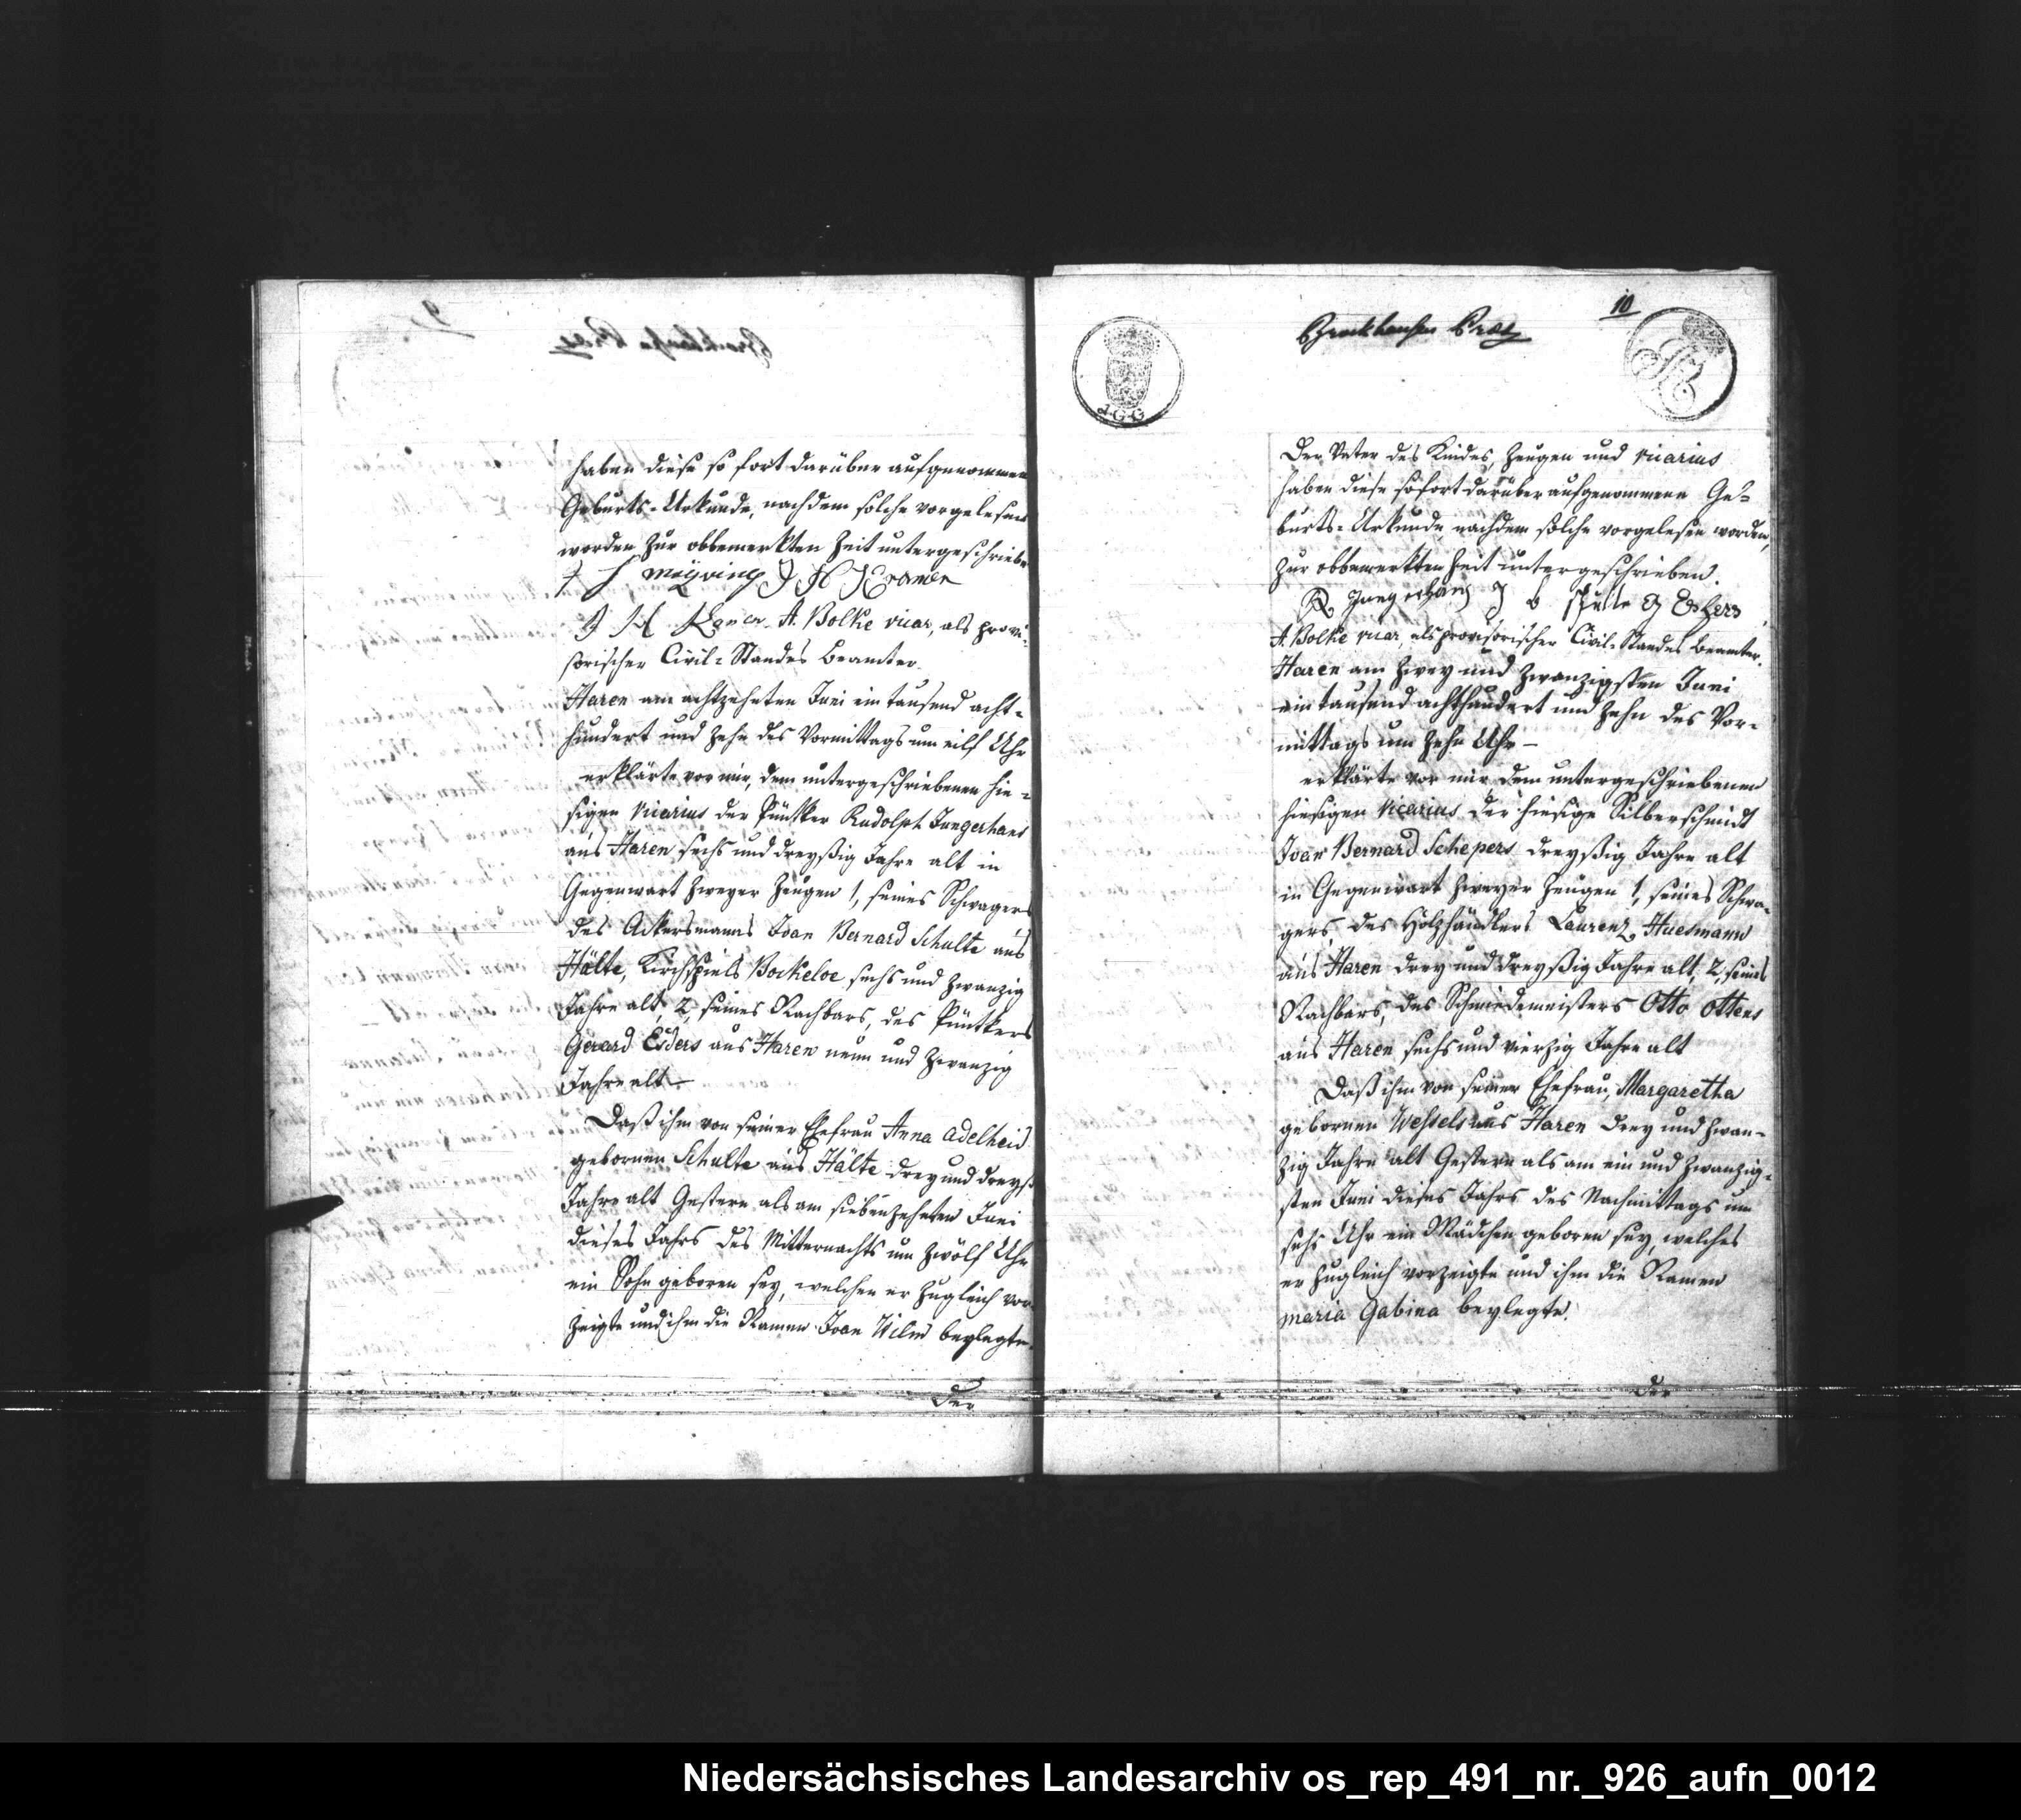 haben diese so fort darüber aufgenommen
Geburts-Urkunde, nachdem solche vorgelesen
worden zur obbemerkten Zeit unterges‌chrieben
J H Kramer
J H A. Bolke vicar, als provi-
sorischer Civil-Standes Beamter.
Haren am achtzehnten Juni ein tausend acht-
hundert und zehn des Vormittags um eilf Uhr
erklärte vor mir, dem untergeschriebenen hie-
sigen Vicarius der Püntker Rudolph Jungerhans
aus Haren sechs und dreyßig Jahre alt in
Gegenwart zweyer Zeugen 1, seines Schwagers
des Ackersmanns Joan Bernard Schulte aus
Hälte, Kirchspiels Bokeloe sechs und zwanzig
Jahre alt, 2, seines Nachbars, des Püntkers
Gerard Esders aus Haren neun und zwanzig
Jahre alt –
Daß ihm von seiner Ehefrau Anna Adelheid
gebornen Schulte aus Hälte drey und dreyß
Jahre alt Gestern als am siebenzehnten Juni
dieses Jahrs des Mitternachts um zwölf Uhr
ein Sohn geboren sey, welchen er zugleich vor
zeigte und ihm die Namen Joan Wilm beylegte.
Der
10
I.G.G
Der Vater des Kindes, Zeugen und vicarius
haben diese sofort darüber aufgenommene Ge-
burts-Urkunde nachdem solche vorgelesen worden,
zur obbemerkten Zeit untergeschrieben.
R Jungerhans J B G Esders
A. Bolke vicar, als provisorischer Civil-Standes Beamter.
Haren am zwey und zwanzigsten Juni
ein tausend achthundert und zehn des Vor-
mittags um zehn Uhr –
erklärte vor mir dem untergeschriebenen
hiesigen Vicarius der hiesige Silberschmidt
Joan Bernard Schepers dreyßig Jahre alt
in Gegenwart zweyer Zeugen 1, seines Schwa-
gers des Holzhändlers Laurenz Huesmann
aus Haren drey und dreyßig Jahre alt, 2, seines
Nachbars, des Schmiedemeisters Otto Ottens
aus Haren sechs und vierzig Jahre alt
Daß ihm von seiner Ehefrau, Margaretha
gebornen Wessels aus Haren drey und zwan-
zig Jahre alt Gestern als am ein und zwanzig-
sten Juni dieses Jahrs des Nachmittags um
sechs Uhr ein Mädchen geboren sey, welches
er zugleich vorzeigte und ihm die Namen
Maria Gabina beylegte.
Der
Niedersächsisches Landesarchiv os_rep_491_nr._926_aufn_0012